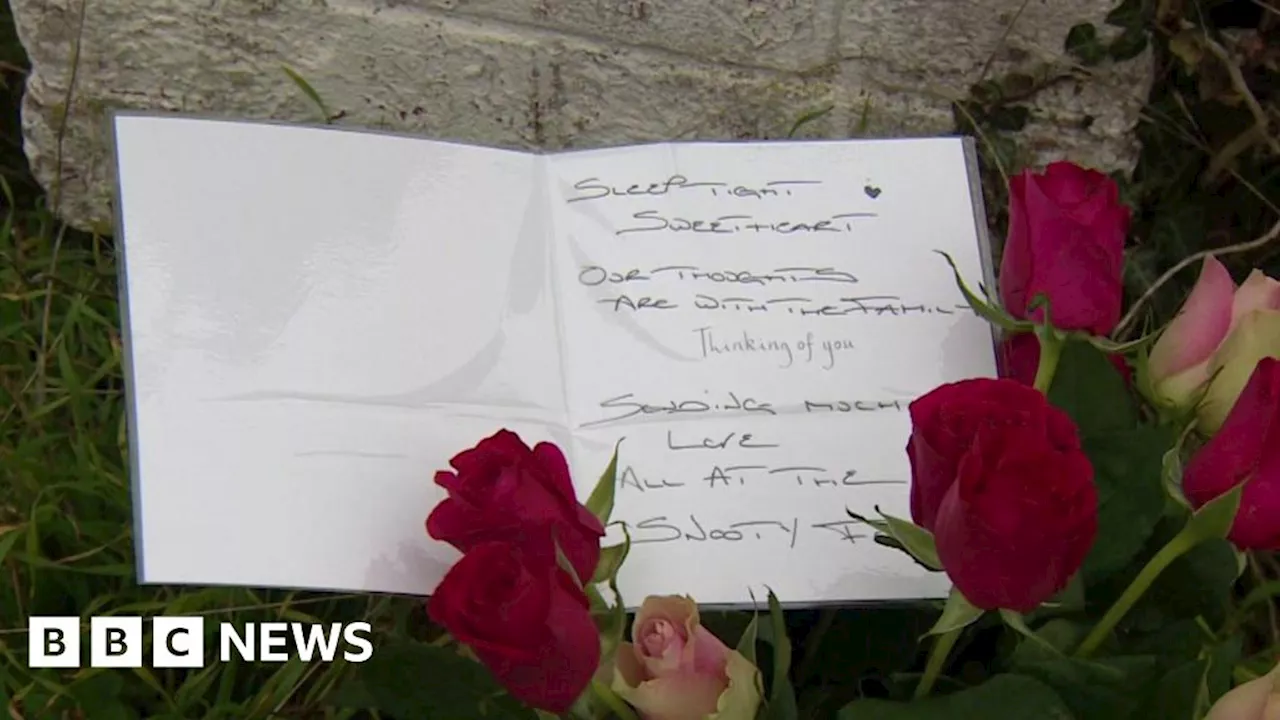 SLEEP TIGHT
SWEETHEART
OUR THOUGHTS
ARE WITH THE FAMIL
Thinking of you
SENDING MUCH
LOVE
ALL AT THE
SNOOTY F
BBC NEWS